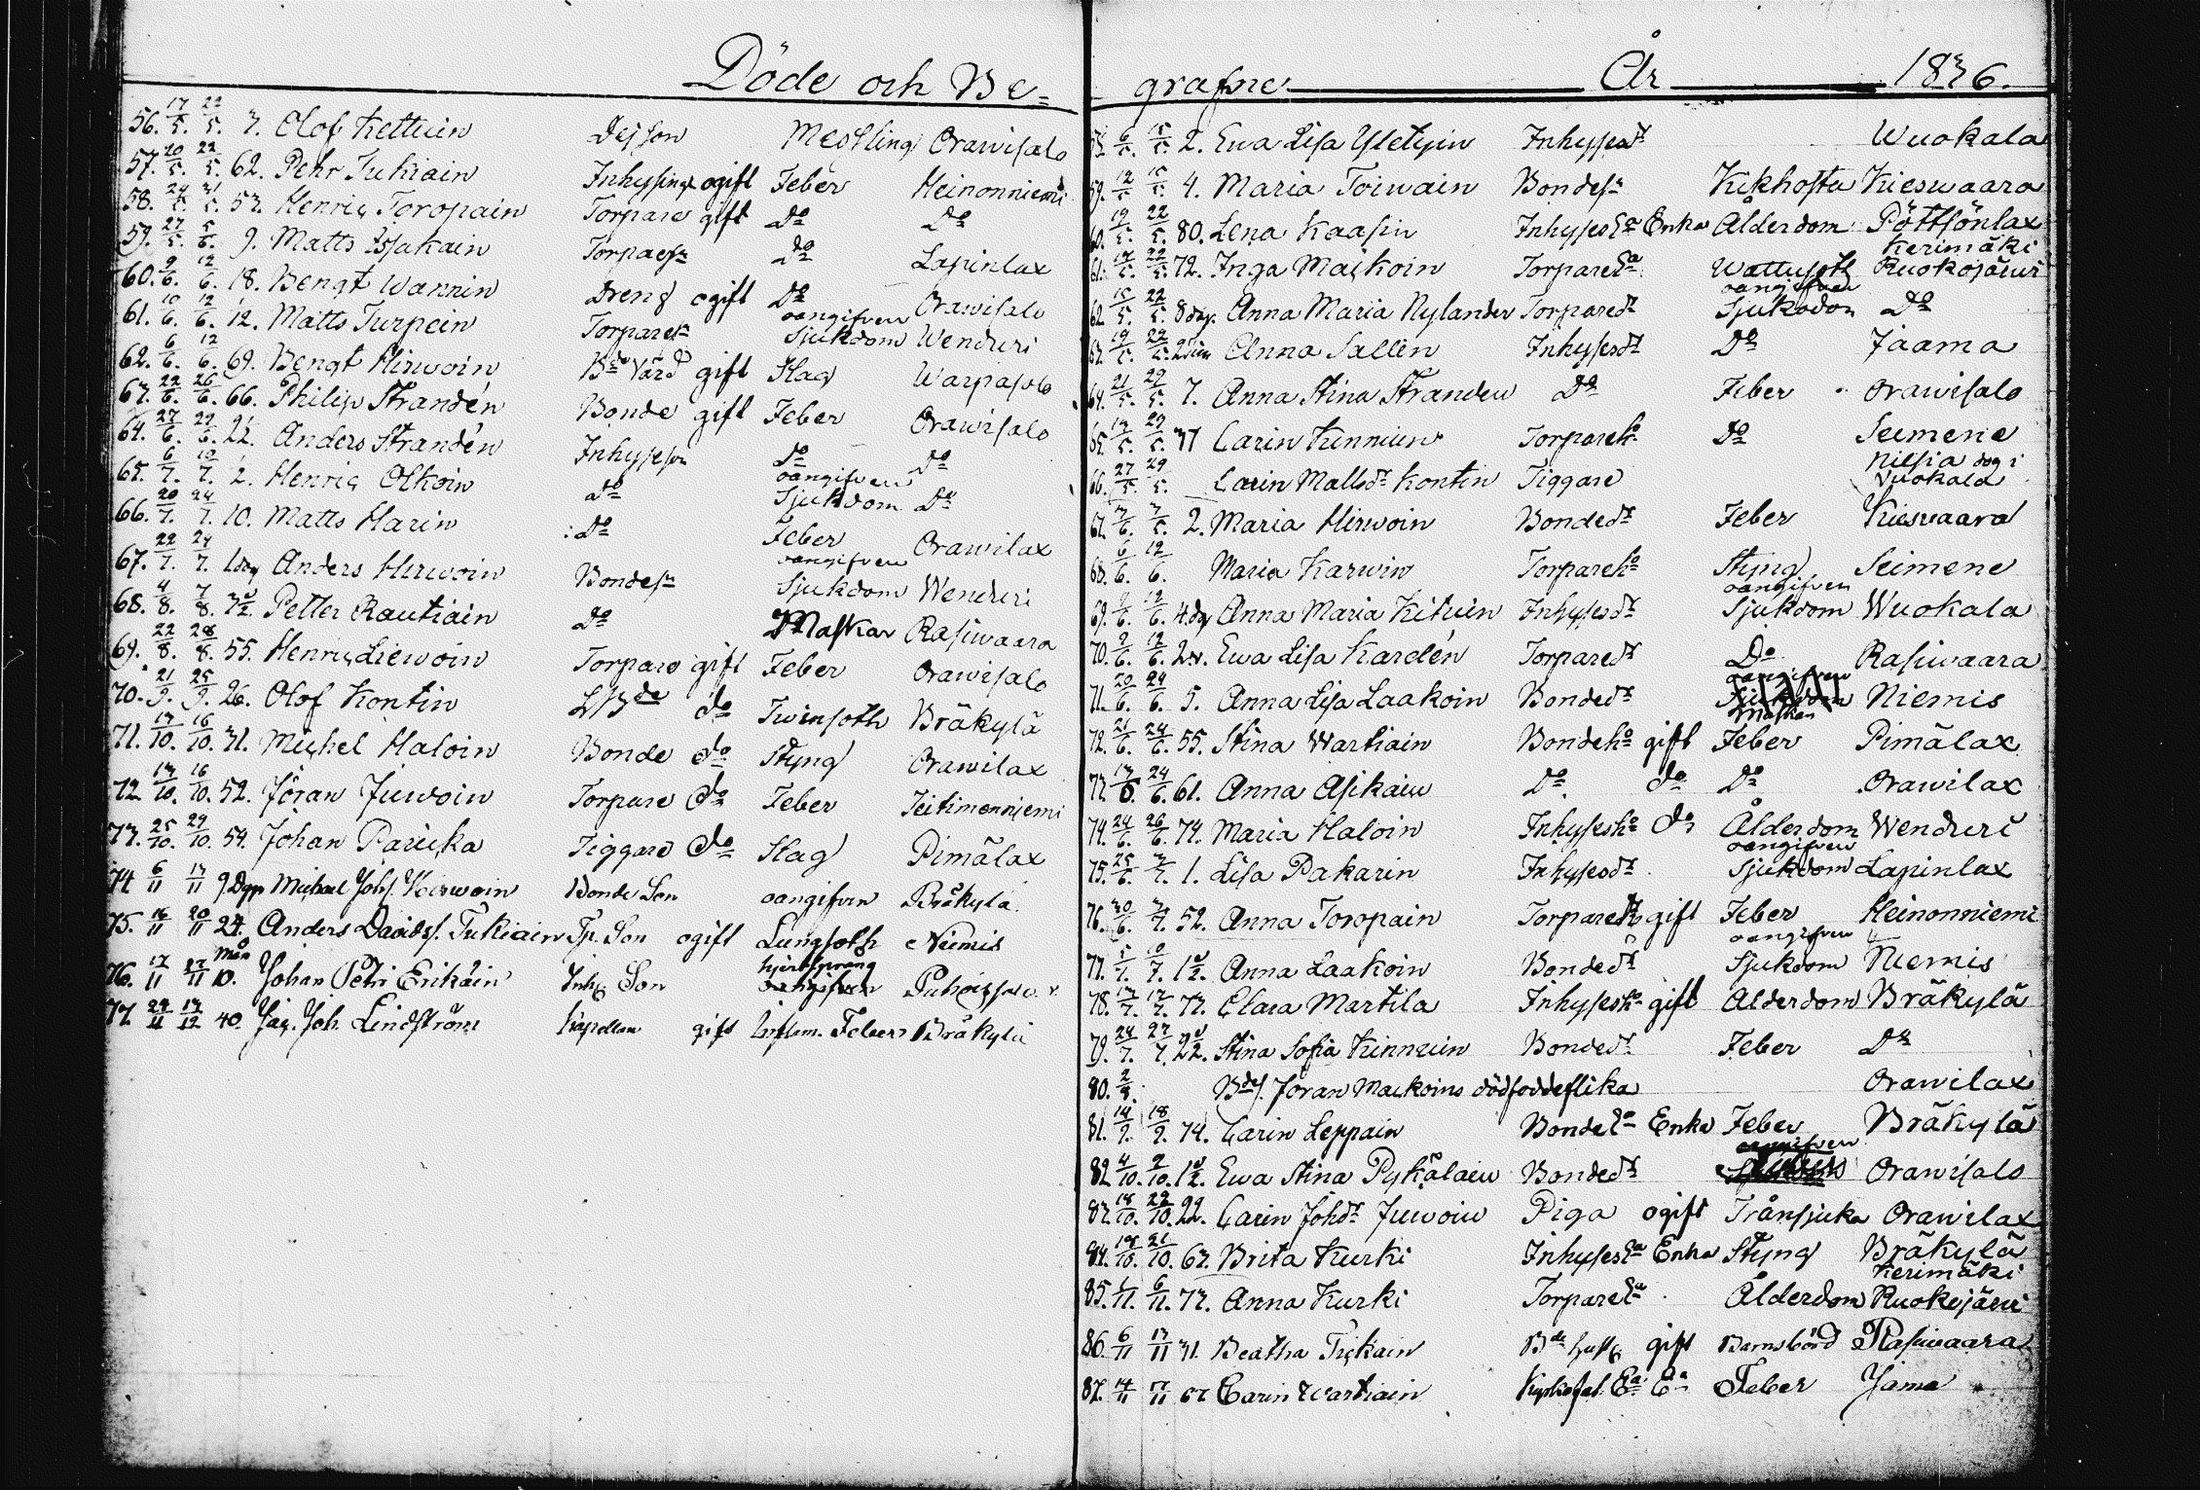 Döde och Be-
56. 17/5. 22/5. 3. Olof Kettuin Dejson Messling Orawisalo
57. 20/5. 22/5. 62. Pehr Tukiain Inhysing ogift Feber Heinonniemi
58. 24/5. 31/5. 53. Henric Toropain Torpare gift Do Do
59. 27/5. 5/6. 9. Matts Issakain Do Lapinlax
60. 9/6. 12/6. 18. Bengt Wannin Dreng ogift Do Orawisalo
61. 10/6. 12/6. 12. Matts Turpein oangifven Sjukdom Wenduri
62. 6/6. 12/6. 69. Bengt Hirwoin gift Slag Warpasalo
63. 22/6. 26/6. 66. Philip Strandén Bonde gift Feber Orawisalo
64. 27/6. 29/6. Anders Strandén Inhyseson Do Do
65. 6/7. 10/7. 2. Henric Olkoin do oangifven Sjukdom Do
66. 20/7. 24/7. 10. Matts Harin Do Feber Orawilax
67. 22/7. 24/7. 1 dag Anders Hirwoin Bondesn oangifven Sjukdom Wenduri
68. 4/8. 7/8. Petter Rautiain Do Maskar Rasiwaara
69. 22/8. 28/8. 55. Henric Liewoin Torpare gift Feber Orawisalo
70. 21/9. 25/9. 26. Olof Kontin do Twinsoth Bräkylä
71. 13/10. 16/10. 31. Michel Haloin Bonde do Styng Orawilax
72. 13/10. 16/10. 52. Jöran Juwoin Torpare do Feber
73. 25/10. 29/10. 54. Johan Tiggare do Slag Pimälax
74 6/11 13/11 9 Dgr Michael Johs. Hirwoin Bonde Son oangifven Bräkylä
75. 16/11 20/11 24. Anders Davids. Tukiain Tp. Son ogift Lungsoth Niemis
76. 17/11 27/11 10. Mån Johan Petri Erikäin Inh. Son
77. 29/11 13/12 40. Jac. Joh. Lindström Kapellan gift Inflam. Feber Bräkylä
grafne År 1836.
58. 6/5. 15/5. 2. Ewa Lisa Inhysesdr Wuokala
59. 12/5. 15/5. 4. Maria Toiwain Bondesr Kikhosta Kieswaara
60. 19/5. 22/5. 80. Lena Kaasin Inhyses Ea Enka Ålderdom Pöttsönlax
61. 17/5. 22/5. 72. Inga Mackoin Torpare Ea Wattusoth Kerimäki Ruokojärwi
62. 15/5. 22/5. 8 dag. Anna Maria Nylander Torparedr oangifven Sjukdom Do
63. 19/5. 22/5. Anna Sallén Inhysesdr Do Jaama
64. 21/5. 29/5. 7. Anna Stina Stranden Do Feber Orawisalo
65. 29/5. 37 Carin Kinnuin Torpareho Do Seimene
66. 27/5. 29/5. Carin Mattsdr Kontin Tiggare Nilsia dog i Wuokala
67. 2. Maria Hirwoin Bondedr Feber Kieswaara
68. 6/6. 12/6. Maria Karwin Torpareho Styng Seimene
69. 12/6. 4. dag Anna Maria Kituin Inhysesdr oangifven Sjukdom Wuokala
70. 9/6. 12/6. Ewa Lisa Kardén Torparedr Do Rasiwaara
71. 20/6. 24/6. 5. Anna Lisa Laakoin Bondedr oangifven Maskar Niemis
72. 21/6. 24/6. 55. Stina Wartiain Bondeho gift Feber Pimälax
73. 13/6. 24/6. 61. Anna Asikain Do do Do Orawilax
74. 24/6. 26/6. 74. Maria Haloin Inhysesho do Ålderdom Wenduri
75. 25/6. 3/7. 1. Lisa Pakarin Inhysesdr oangifven Sjukdom Lapinlax
76. 30/6. 3/7. 52. Anna Toropain Torpareho gift Feber Heinonniemi
77. 5/7. 10/7. 1½. Anna Laakoin Bondedr oangifven Sjukdom Niemis
78. 13/7. 17/7. 73. Clara Martila Inhysesho gift Ålderdom Bräkylä
79. 24/7. 27/7. Stina Sofia Kinnuin Bondedr Feber Do
80. Bdes. Jöran Mackoins dödfoddeflika Orawilax
81. 14/9. 18/9. 74. Carin Leppain Bonde Ea Enka Feber Bräkylä
82 4/10. 9/10. 1½. Ewa Stina Pykäläin Bondedr oangifven Orawisalo
83. 18/10. 22/10. 22. Carin Johdr Juwoin Piga ogift Trånsjuka Orawilax
84. 18/10. 21/10. 63. Brita Kurki Inhyses Ea Enka Styng Bräkylä
85. 1/11. 6/11. 73. Anna Kurki Torpare Ea Ålderdom Kerimäki Ruokojärwi
86. 6/11 13/11 31. Beatha Tickain Bde hust. gift Barnsbörd Rasiwaara
87. 14/11 67 Carin Wartiain Feber Jama